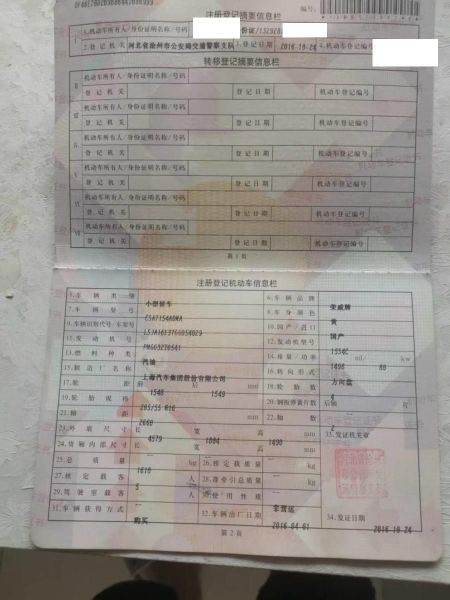 注册登记摘要信息栏
编号:
I
1.机动车所有人/身份证明名称/号码
2.登记机关 河北省沧州市公安局交通警察支队 3.登记日期 2016-10-24 4.机动车登记编号
转移登记摘要信息栏
II 机动车所有人/身份证明名称/号码
登记机关 登记日期 机动车登记编号
III 机动车所有人/身份证明名称/号码
登记机关 登记日期 机动车登记编号
机动车所有人/身份证明名称/号码
登记机关 登记日期 机动车登记编号
V 机动车所有人/身份证明名称/号码
登记机关 登记日期 机动车登记编号
VI 机动车所有人/身份证明名称/号码
登记机关 登记日期 机动车登记编号
VII 机动车所有人/身份证明名称/号码
登记机关 登记日期 机动车登记编号
第1页
注册登记机动车信息栏
5.车辆类型 小型轿车 6.车辆品牌 荣威牌
7.车辆型号 CSA7154ADMA 8.车身颜色 黄
9.车辆识别代号/车架号 10.国产/进口 国产
11.发动机号 12.发动机型号 15S4C
13.燃料种类 汽油 14.排量/功率 1498 ml/ 80 kw
15.制造厂名称 上海汽车集团股份有限公司 16.转向形式 方向盘
17.轮距 前 1548 后 1549 mm 18.轮胎数 4
19.轮胎规格 205/55 R16 20.钢板弹簧片数 后轴 片
21.轴距 2660 mm 22.轴数 2
23.外廓尺寸 长 4579 宽 1804 高 1490 mm 33.发证机关章
24.货厢内部尺寸 长 宽 高 mm
25.总质量 1610 kg 26.核定载质量 kg
27.核定载客 5 人 28.准牵引总质量 kg
29.驾驶室载客 人 30.使用性质 非营运
31.车辆获得方式 购买 32.车辆出厂日期 2016-04-01 34.发证日期 2016-10-24
第2页